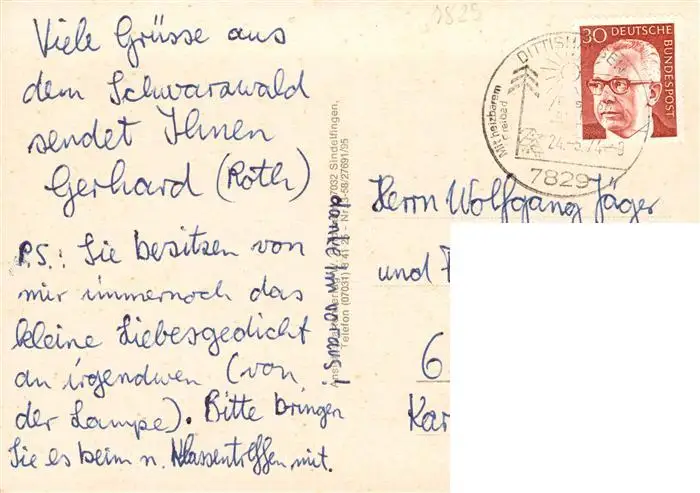 1829
Viele Grüsse aus
dem Schwarzwald
sendet Ihnen
Gerhard (Roth)
P.S.: Sie besitzen von
mir immernoch das
kleine Liebesgedicht
an irgendwen (von
der Lampe). Bitte bringen
Sie es beim n. Klassentreffen mit.
danke im voraus!
7032 Sindelfingen,
Telefon (07031)
30 DEUTSCHE
BUNDESPOST
Mit heizbarem
Freibad
7829
Herrn Wolfgang Jäger
und
6
Kar